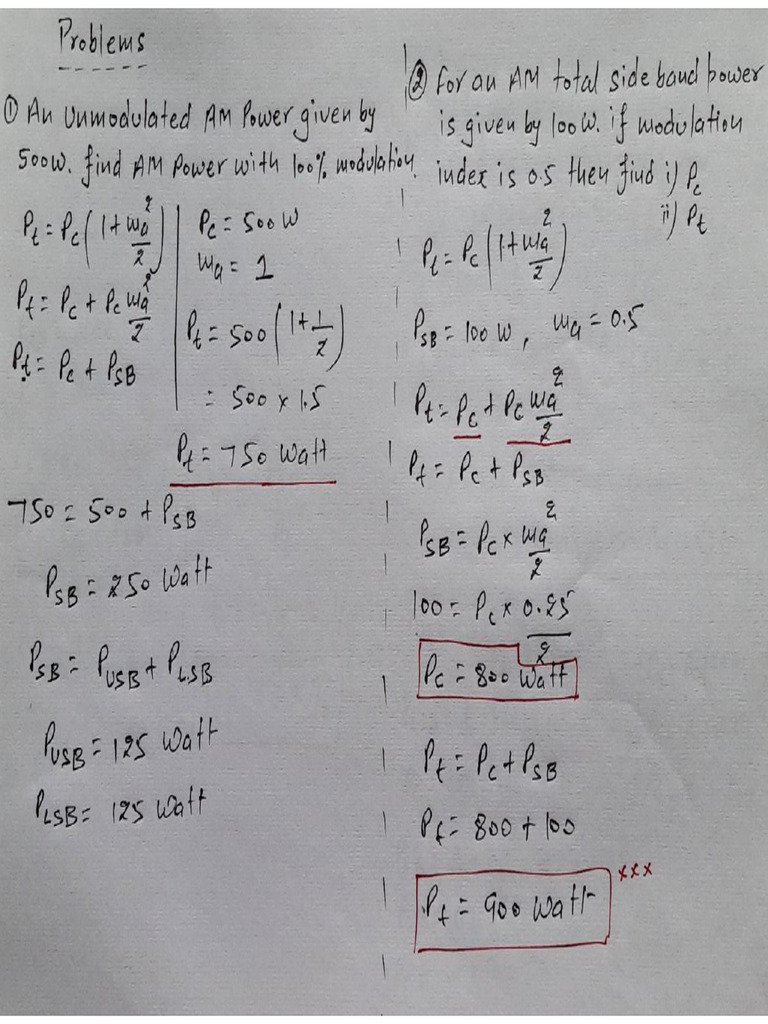 Problems
① An Unmodulated AM Power given by
500W. find AM Power with 100% modulation.
Pt = Pc(1+ma²/2)
Pt = Pc + Pc ma²/2
Pt = Pc + PSB
Pc = 500 W
ma = 1
Pt = 500 (1+1/2)
= 500 x 1.5
Pt = 750 Watt
750 = 500 + PSB
PSB = 250 Watt
PSB = PUSB + PLSB
PUSB = 125 Watt
PLSB = 125 Watt
② For an AM total side band power
is given by 100W. if modulation
index is 0.5 then find i) Pc
ii) Pt
Pt = Pc (1+ma²/2)
PSB = 100 W, ma = 0.5
Pt = Pc + Pc ma²/2
Pt = Pc + PSB
PSB = Pc x ma²/2
100 = Pc x 0.25/2
Pc = 800 Watt
Pt = Pc + PSB
Pt = 800 + 100
Pt = 900 Watt xxx